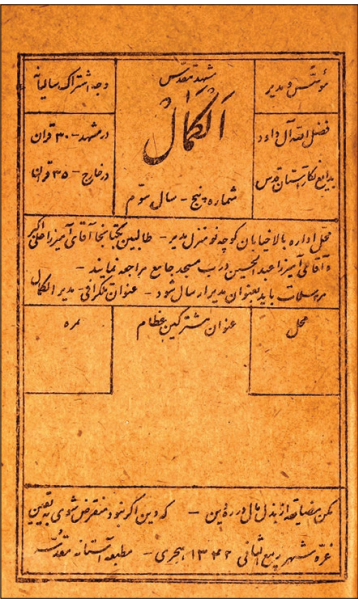 مؤسس و مدیر
فضل الله آل داود
بدایع نگار آستان قدس
مشهد مقدس
الکمال
شماره پنج - سال سوم
وجه اشتراک سالیانه
در مشهد - ۳۰ قران
در خارج - ۳۵ قران
محل اداره بالاخیابان کوچه نو منزل مدیر - طالبین بکتابخانهای آقای آمیرزا علی اکبر
و آقای آمیرزا عبدالحسین درب مسجد جامع مراجعه نمایند -
مرسلات باید بعنوان مدیر ارسال شود - عنوان تلگرافی - مدیر الکمال
محل
عنوان مشترکین عظام
نمره
مکن مضایقه از بذل مال در ره دین - که دین اگر نبود منقرض شوی به یقین
غره شهر ربیع الثانی ۱۳۴۲ هجری - مطبعه آستانه مقدسه